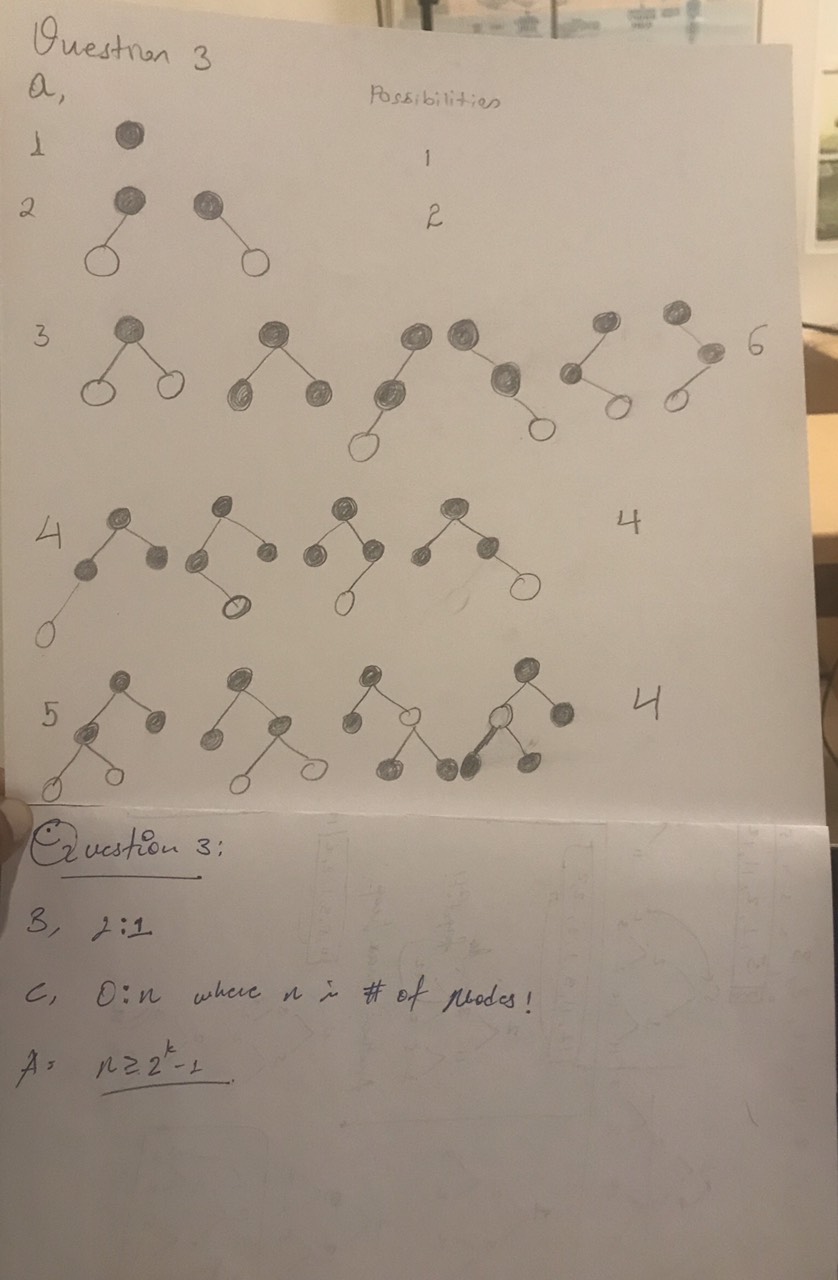 Question 3
a,
Possibilities
1 1
2 2
3 6
4 4
5 4
Question 3:
B, 2:1
C, 0:n where n is # of Nodes!
A: n ≥ 2^k - 1